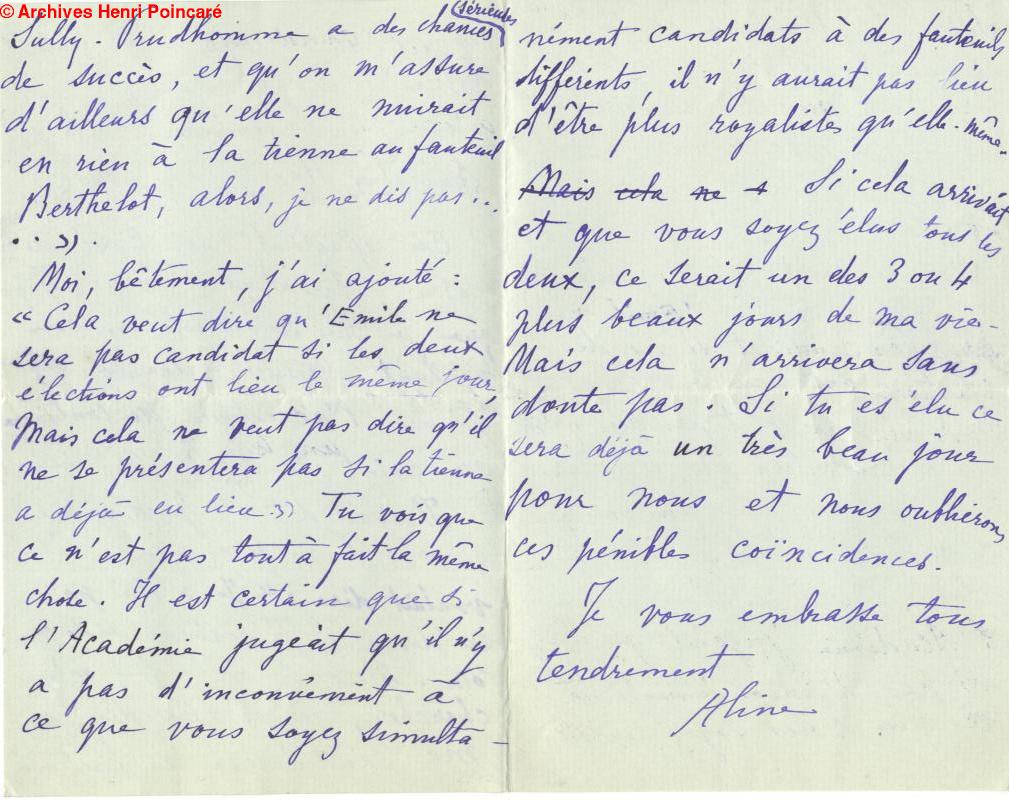 © Archives Henri Poincaré
sérieuses
Sully-Prudhomme a des chances
de succès, et qu'on m'assure
d'ailleurs qu'elle ne nuirait
en rien à la tienne au fauteuil
Berthelot, alors, je ne dis pas ..
. . » .
Moi, bêtement, j'ai ajouté :
« Cela veut dire qu'Emile ne
sera pas candidat si les deux
élections ont lieu le même jour,
Mais cela ne veut pas dire qu'il
ne se présentera pas si la tienne
a déjà eu lieu » Tu vois que
ce n'est pas tout à fait la même
chose. Il est certain que si
l'Académie jugeait qu'il n'y
a pas d'inconvénient à
ce que vous soyez simulta-
nément candidats à des fauteuils
différents, il n'y aurait pas lieu
d'être plus royalistes qu'elle-même.
Mais cela ne Si cela arrivait
et que vous soyez élus tous les
deux, ce serait un des 3 ou 4
plus beaux jours de ma vie-
Mais cela n'arrivera sans
doute pas. Si tu es élu ce
sera déjà un très beau jour
pour nous et nous oublierons
ces pénibles coïncidences.
Je vous embrasse tous
tendrement
Aline